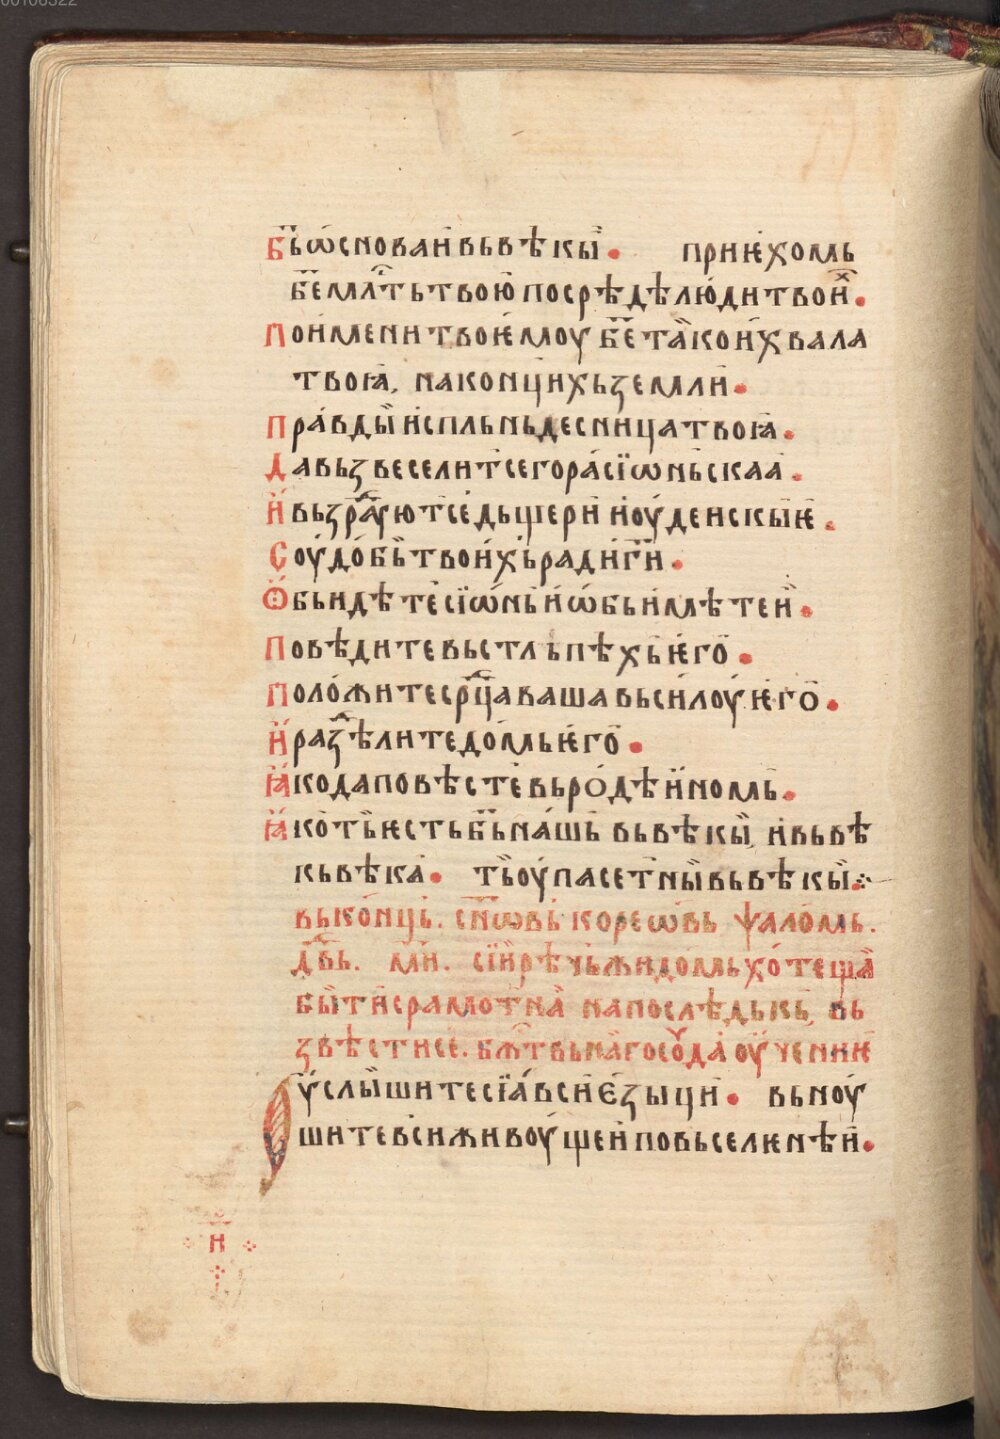 00106322
б҃ь ѡснова и вь вѣкы. приѥхомь
б҃е млⷭ҇ть твою посрѣдѣ людїи твоиⷯ.
По имени твоѥмоу б҃е тако и хвала
твоꙗ, на концихь земли.
Правды испльнь десница твоꙗ.
Да вьзвеселит се гора сїѡньскаа.
И вьзрⷣаують се дьщери иоуденскыѥ.
Соудобь твоихь ради г҃и.
Ѡбьидѣте сїѡнь и ѡбьимѣте и.
Повѣдите вь стльпѣхь ѥго.
Положите срⷣца ваша вь силоу ѥго.
И раздⷣѣлите домь ѥго.
Ꙗко да повѣсте вь родѣ иномь.
Ꙗко ть ѥсть б҃ь нашь вь вѣкы, и вь вѣ
кь вѣка. ть оупасет ны вь вѣкы.
вь коньць. сн҃ѡвь кореѡвь ѱаломь.
дв҃ь. м҃и. сїи рѣчь жидомь хотеща
быти срамотна напослѣдькь, вь
звѣсти се. бжⷭ҇твьна господа оучениѥ
Оуслышите сїа вси ѥзыци. вьноу
шите вси живоущеи по вьселѥнѣи.
н